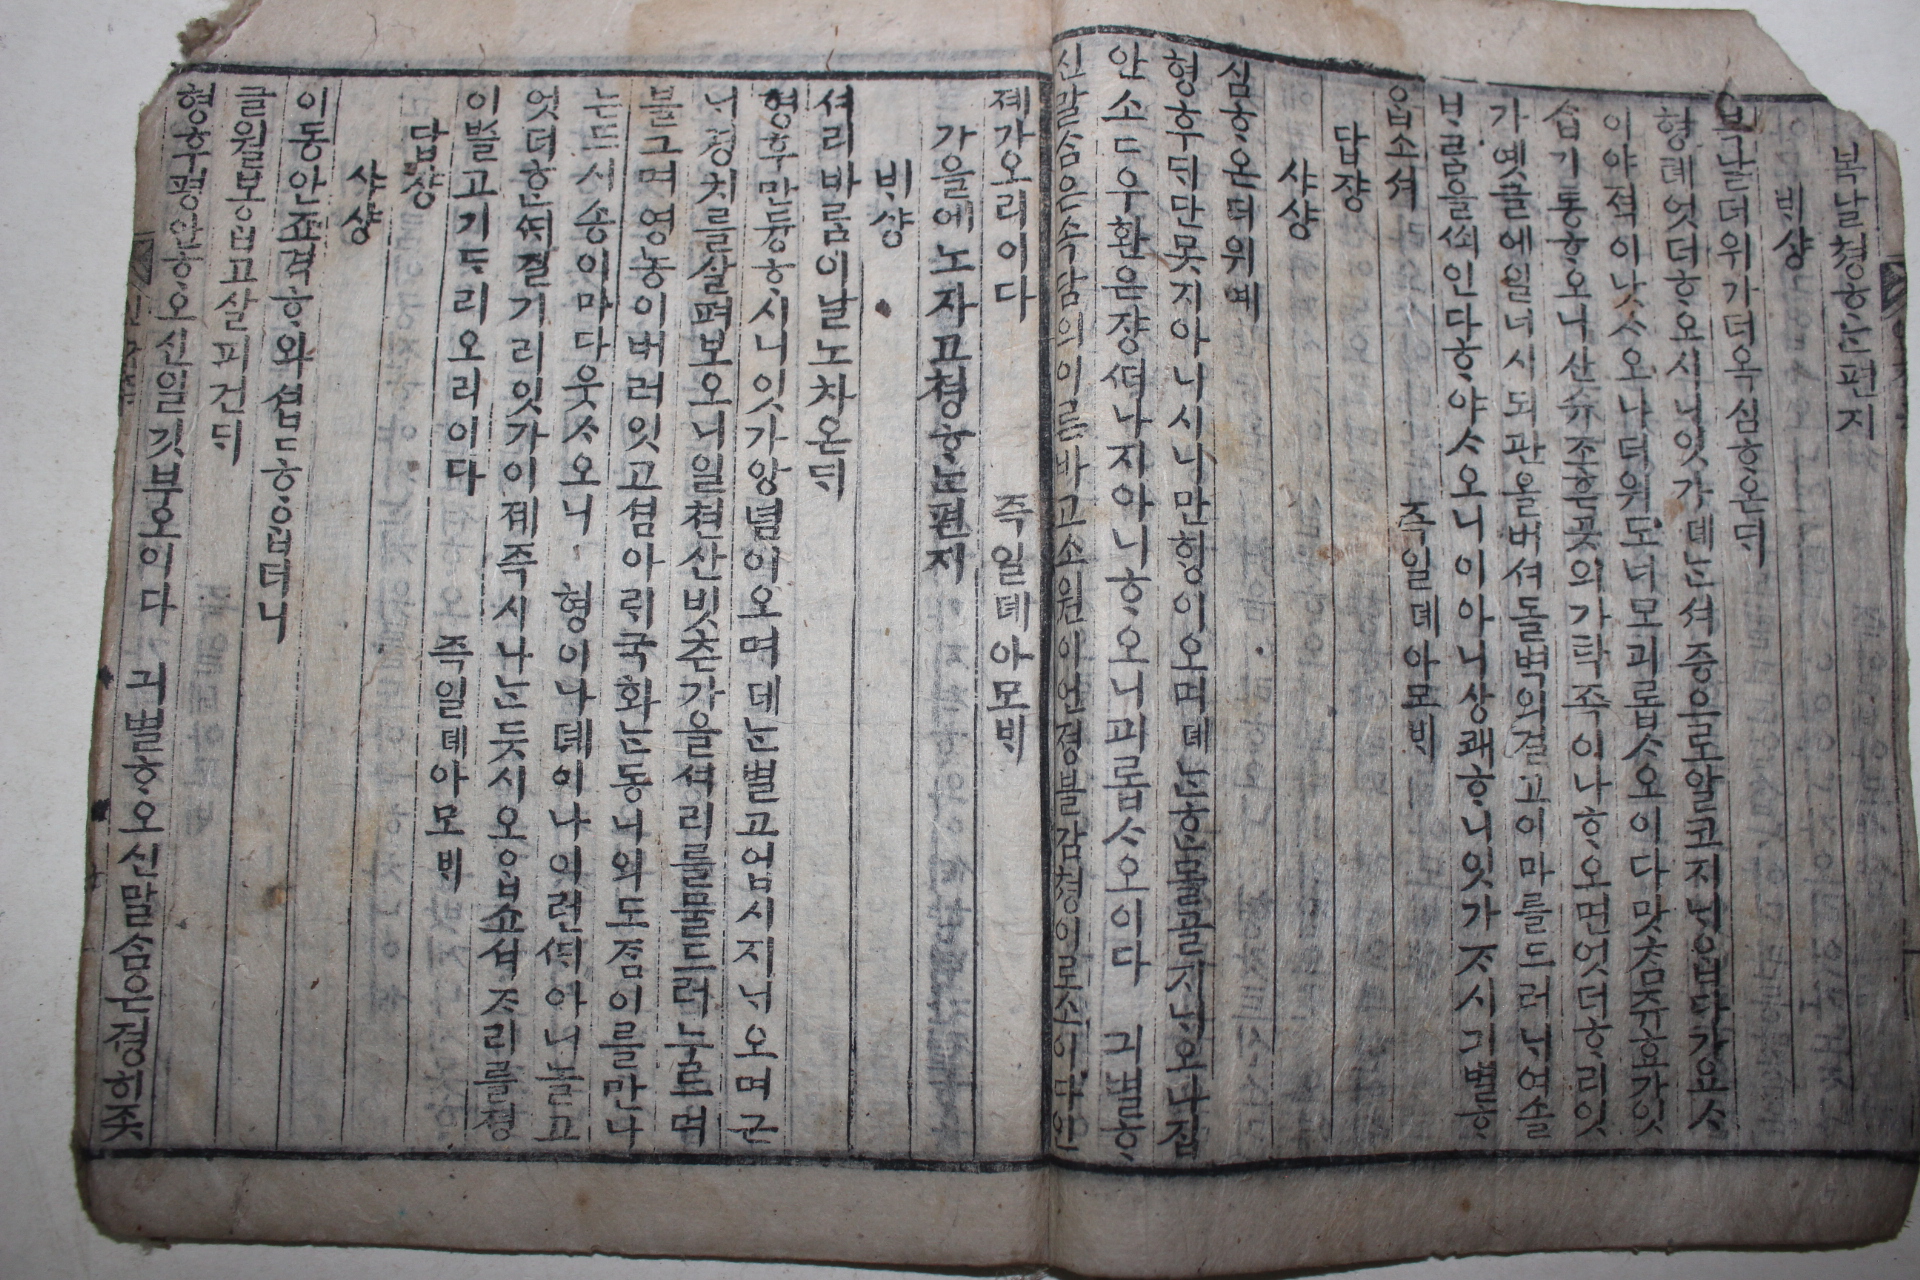 복날쳥ᄒᆞᄂᆞᆫ편지
ᄇᆡ샹
복날더위가더옥심ᄒᆞ온ᄃᆡ
형톄엇더ᄒᆞ오시니잇가뎨ᄂᆞᆫ셔증으로알코지
이야젹이낫ᄉᆞ오나더위도너모괴롭ᄉᆞ오이다맛ᄎᆞᆷ
ᄉᆞᆸ기통ᄒᆞ오니산슈조흔곳의가탁죡이나ᄒᆞ오면엇더ᄒᆞ리잇
가옛글에일너시되관을버셔돌벽의걸고이마를드러ᄂᆡ여솔
ᄇᆞ람을ᄶᅬ인다ᄒᆞ야ᄉᆞ오니이아니샹쾌ᄒᆞ니잇가ᄌᆞ시긔별ᄒᆞ
ᄋᆞᆸ소셔 즉일뎨아모ᄇᆡ
답쟝
샤샹
심ᄒᆞ온더위예
형후ᄃᆡ만못지아니시니만ᄒᆡᆼ이오며뎨ᄂᆞᆫᄒᆞᆫ모골지ᄂᆡ오나집
안소ᄃᆞ우환은쟝ᄯᅥ나지아니ᄒᆞ오니괴롭ᄉᆞ오이다 긔별ᄒᆞ
신말ᄉᆞᆷ은속담의이른바고소원이언졍불감쳥이로소이다인
졔가오리이다 즉일뎨아모ᄇᆡ
가을에노자고쳥ᄒᆞᄂᆞᆫ편지
ᄇᆡ샹
셔리바람이날노차온ᄃᆡ
형후만듕ᄒᆞ시니잇가앙념이오며뎨ᄂᆞᆫ별고업시지ᄂᆡ오며근
ᄂᆡ경치를살펴보오니일쳔산빗츤가을셔리를물드려누르며
블그며영농이버러잇고셤아ᄅᆡ국화ᄂᆞᆫ동니의도졈이를만나
ᄂᆞᆫᄃᆞ시송이마다웃ᄉᆞ오니 형이나뎨이나이런ᄯᅢ아니놀고
엇더ᄒᆞᆫᄯᅢ질기리잇가이졔즉시나ᄂᆞᆫᄃᆞᆺ시오ᄋᆞᆸ쇼셔ᄌᆞ리를졍
이ᄡᅳᆯ고기ᄃᆞ리오리이다 즉일뎨아모ᄇᆡ
답샹
샤샹
이동안죠격ᄒᆞ와셥ᄃᆞᄒᆞᄋᆞᆸ더니
글월보ᄋᆞᆸ고살피건ᄃᆡ
형후평안ᄒᆞ오신일깃부오이다 긔별ᄒᆞ오신말ᄉᆞᆷ은졍히ᄌᆞ